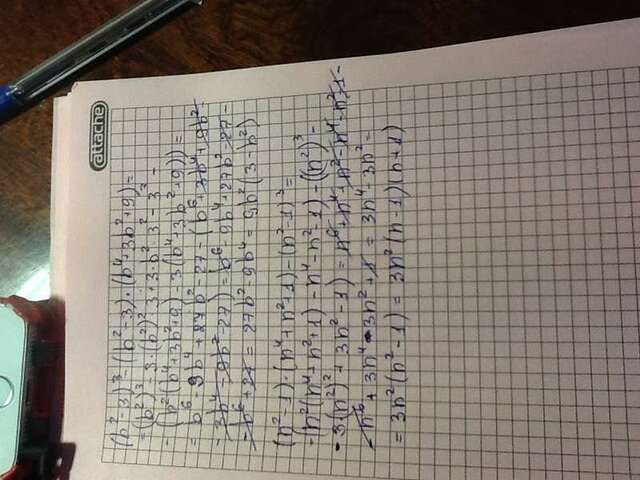 attache
(b²-3)³-(b²-3)·(b⁴+3b²+9)=
=(b²)³-3·(b²)²·3+3·b²·3²-3³-
-(b²(b⁴+3b²+9)-3(b⁴+3b²+9))=
=b⁶-9b⁴+27b²-27-(b⁶+3b⁴+9b²-
-3b⁴-9b²-27)=b⁶-9b⁴+27b²-27-
-b⁶+27=27b²-9b⁴=9b²(3-b²)
(n²-1)·(n⁴+n²+1)-(n²-1)³=
-(n²(n⁴+n²+1)-n⁴-n²-1)-((n²)³-
-3(n²)²+3n²-1)=n⁶+n⁴+n²-n⁴-n²-1-
-n⁶+3n⁴-3n²+1=3n⁴-3n²-
=3n²(n²-1)=3n²(n-1)(n+1)